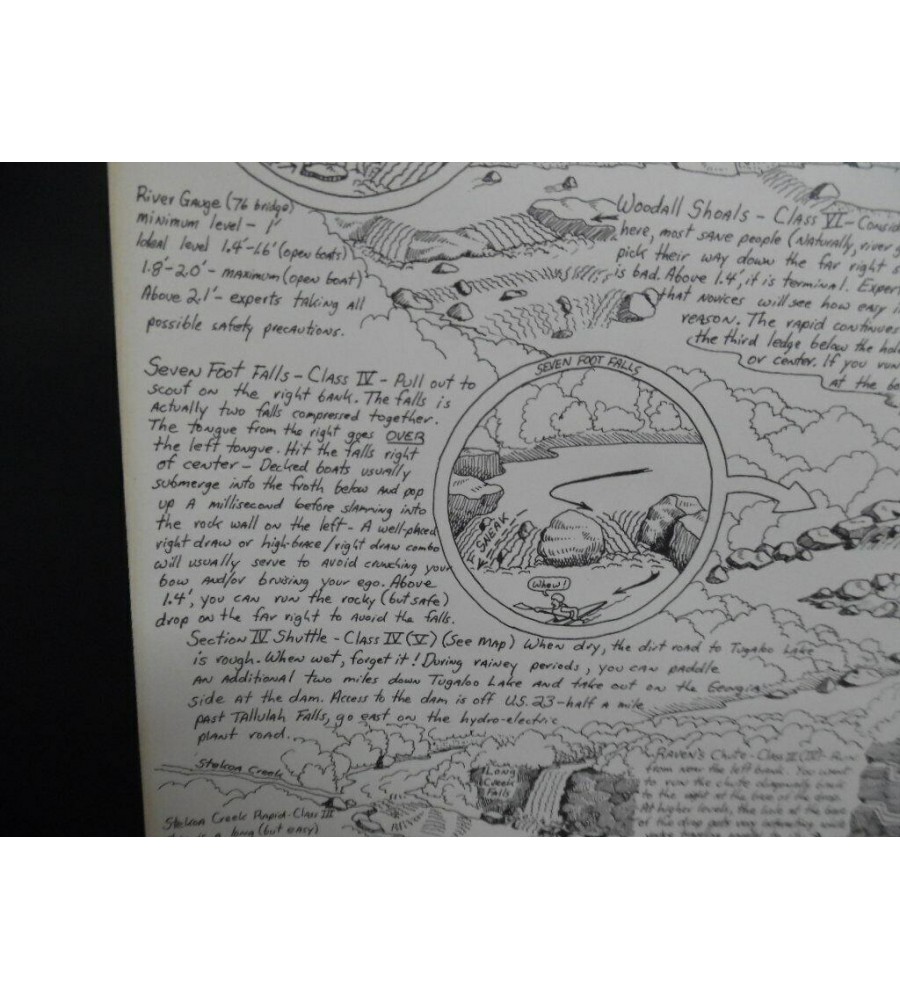 River Gauge (76 bridge)
minimum level - 1'
Ideal level 1.4'-1.6' (open boats)
1.8'-2.0' - maximum (open boat)
Above 2.1' - experts taking all
possible safety precautions.
Woodall Shoals - Class VI - Consid
here, most sane people (Naturally, river g
pick their way down the far right s
is bad. Above 1.4', it is terminal. Exper
that novices will see how easy i
reason. The rapid continues
the third ledge below the hol
or center. If you run
at the bo
Seven Foot Falls - Class IV - Pull out to
scout on the right bank. The falls is
actually two falls compressed together.
The tongue from the right goes OVER
the left tongue. Hit the falls right
of center - Decked boats usually
submerge into the froth below and pop
up a millisecond before slamming into
the rock wall on the left - A well-placed
right draw or high-brace/right draw combo
will usually serve to avoid crunching your
bow and/or bruising your ego. Above
1.4', you can run the rocky (but safe)
drop on the far right to avoid the falls.
SEVEN FOOT FALLS
SNEAK
Whew!
Section IV Shuttle - Class IV (V) (See map) When dry, the dirt road to Tugaloo Lake
is rough. When wet, forget it! During rainey periods, you can paddle
an additional two miles down Tugaloo Lake and take out on the Georgia
side at the dam. Access to the dam is off U.S. 23 - half a mile
past Tallulah Falls, go east on the hydro-electric
plant road.
Stekoa Creek
Long
Creek
Falls
Raven's Chute - Class III (IV) - Run
from near the left bank. You want
to run the chute diagonally back
to the right at the base of the drop.
At higher levels, the hole at the base
of the drop gets very
Stekoa Creek Rapid - Class III
a long (but easy)